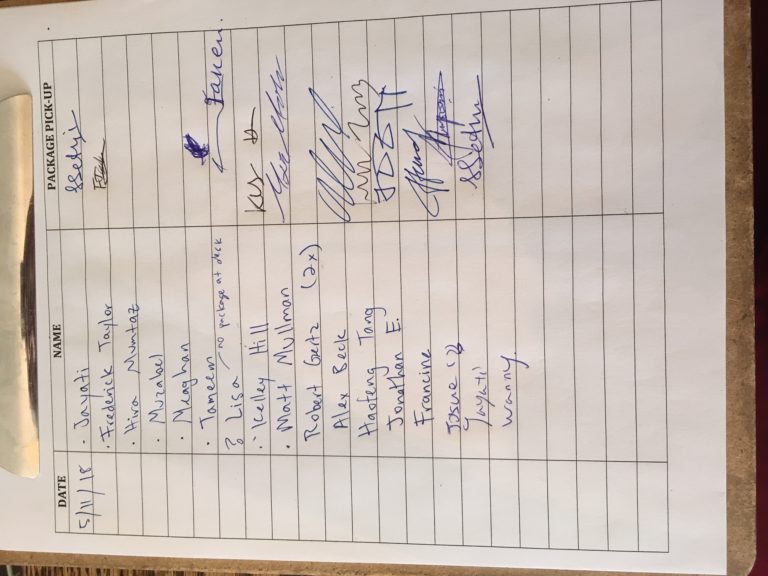 DATE NAME PACKAGE PICK-UP
5/11/18 · Jayati SSethi
· Frederick Taylor
· Hira Mumtaz
· Murabel
· Meaghan
· Tameem Taken.
? Lisa - no package at desk
· Kelley Hill KLS H
· Matt Mullman
Robert Gertz (2x)
Alex Beck
Haofeng Tang
Jonathan E. JDBH
Francine
Josue (2)
Jayati SSethi
Wanny